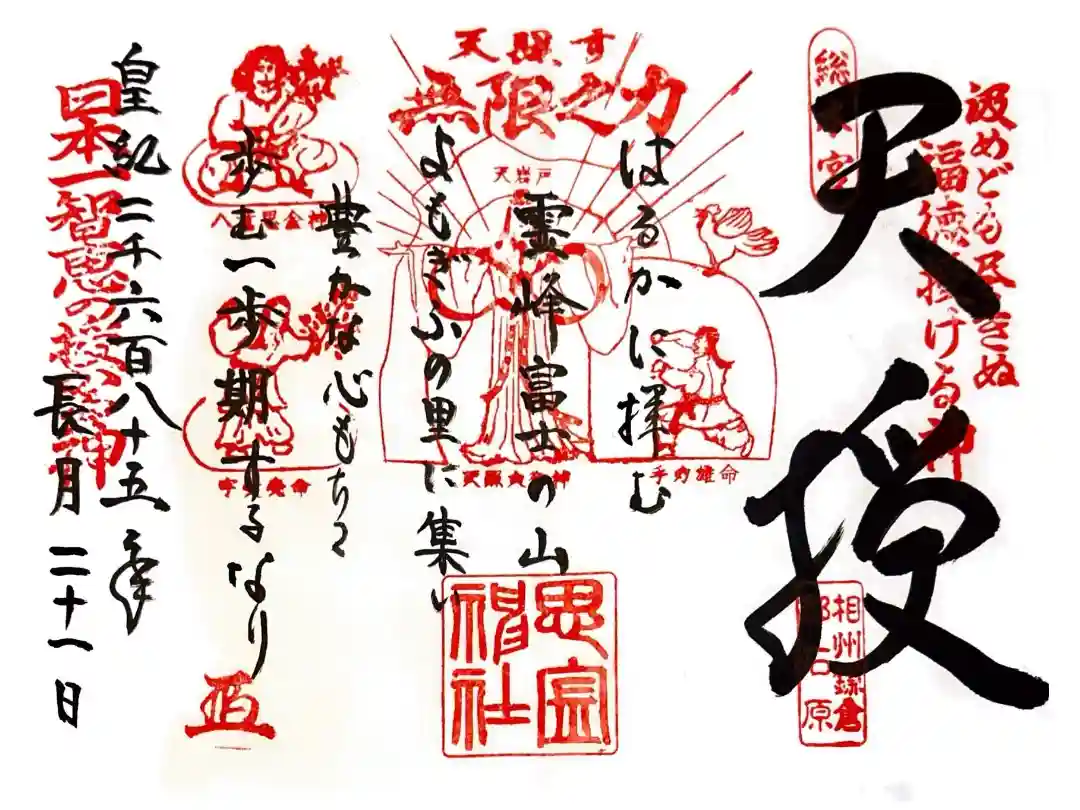 汲めども尽きぬ
福徳授ける神
天授
相州鎌倉
天照す
無限之力
天岩戸
はるかに拝む
霊峰富士の山
よもぎふの里に集い
豊かな心もちて
歩む一歩期するなり
天照大御神
手力雄命
思金
神社
皇紀二千六百八十五年
長月二十一日
日本一智恵の授け神